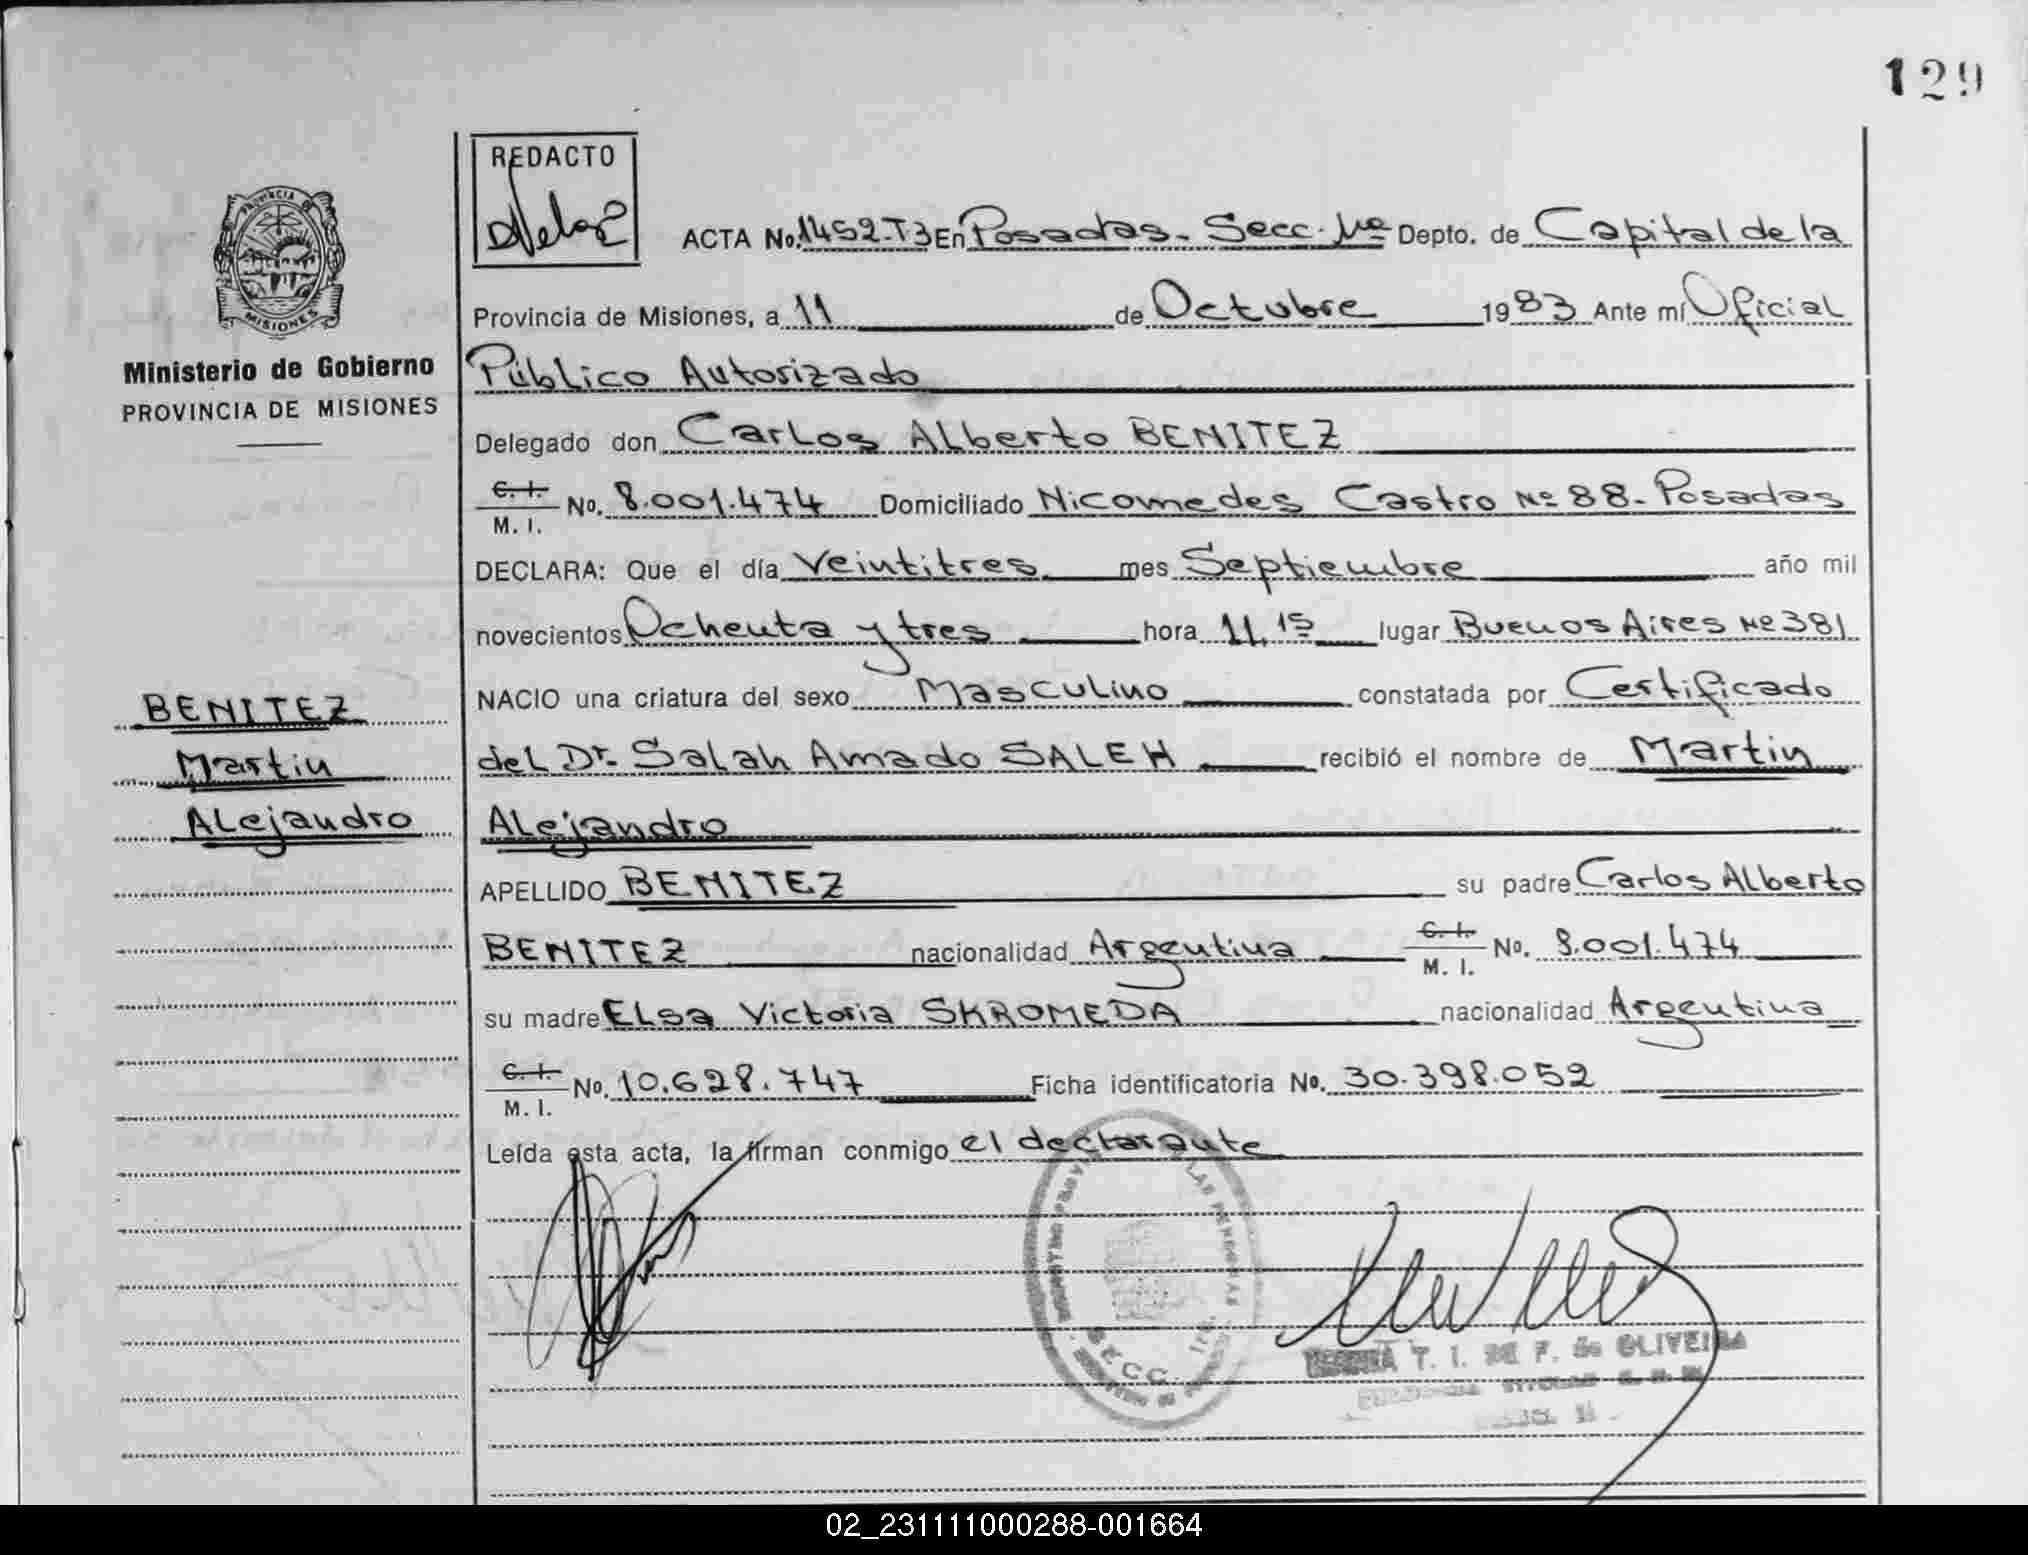 129
REDACTO
PROVINCIA DE
MISIONES
Ministerio de Gobierno
PROVINCIA DE MISIONES
ACTA No. 1452-T3 En Posadas - Secc. 1ra Depto. de Capital de la
Provincia de Misiones, a 11 de Octubre 1983 Ante mí Oficial
Público Autorizado
Delegado don Carlos Alberto BENITEZ
C. I. M. I. No. 8.001.474 Domiciliado Nicomedes Castro Nº 88 - Posadas
DECLARA: Que el día Veintitres mes Septiembre año mil
novecientos Ochenta y tres hora 11,15 lugar Buenos Aires Nº 381
NACIO una criatura del sexo Masculino constatada por Certificado
del Dr. Salah Amado SALEH recibió el nombre de Martin
Alejandro
BENITEZ
Martin
Alejandro
APELLIDO BENITEZ su padre Carlos Alberto
BENITEZ nacionalidad Argentina C. I. M. I. No. 8.001.474
su madre Elsa Victoria SKROMEDA nacionalidad Argentina
C. I. M. I. No. 10.628.747 Ficha identificatoria No. 30.398.052
Leída esta acta, la firman conmigo el declarante
LAS PERSONAS
SECC. 1ra.
T. I. DE F. de OLIVEIRA
02_231111000288-001664